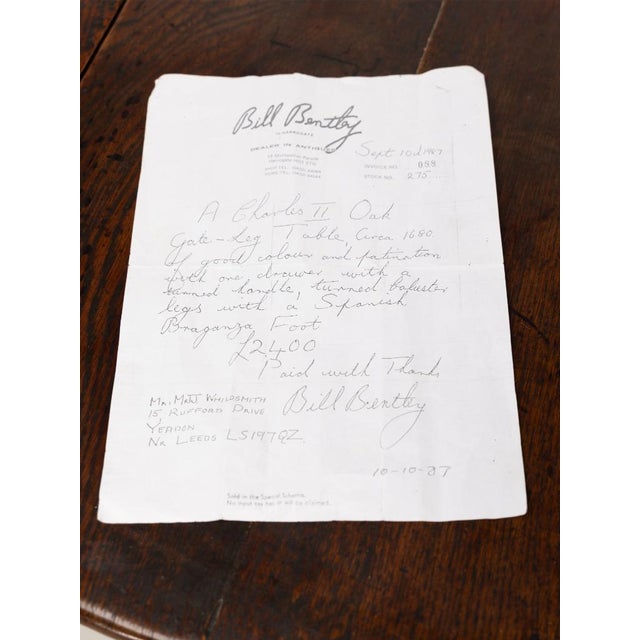 Bill Bentley
HARROGATE
DEALER IN ANTIQUES
Sept 10th 1987
INVOICE NO. 988
STOCK NO. 275
A Charles II Oak
Gate-Leg Table, Circa 1680.
of good colour and patination
with one drawer with a
turned handle, turned baluster
legs with a Spanish
Braganza Foot
£2400
Paid with Thanks
Bill Bentley
15, RUFFORD DRIVE
YEADON
NR LEEDS LS197QZ
10-10-87
Sold in the Special Scheme.
No input tax has or will be claimed.